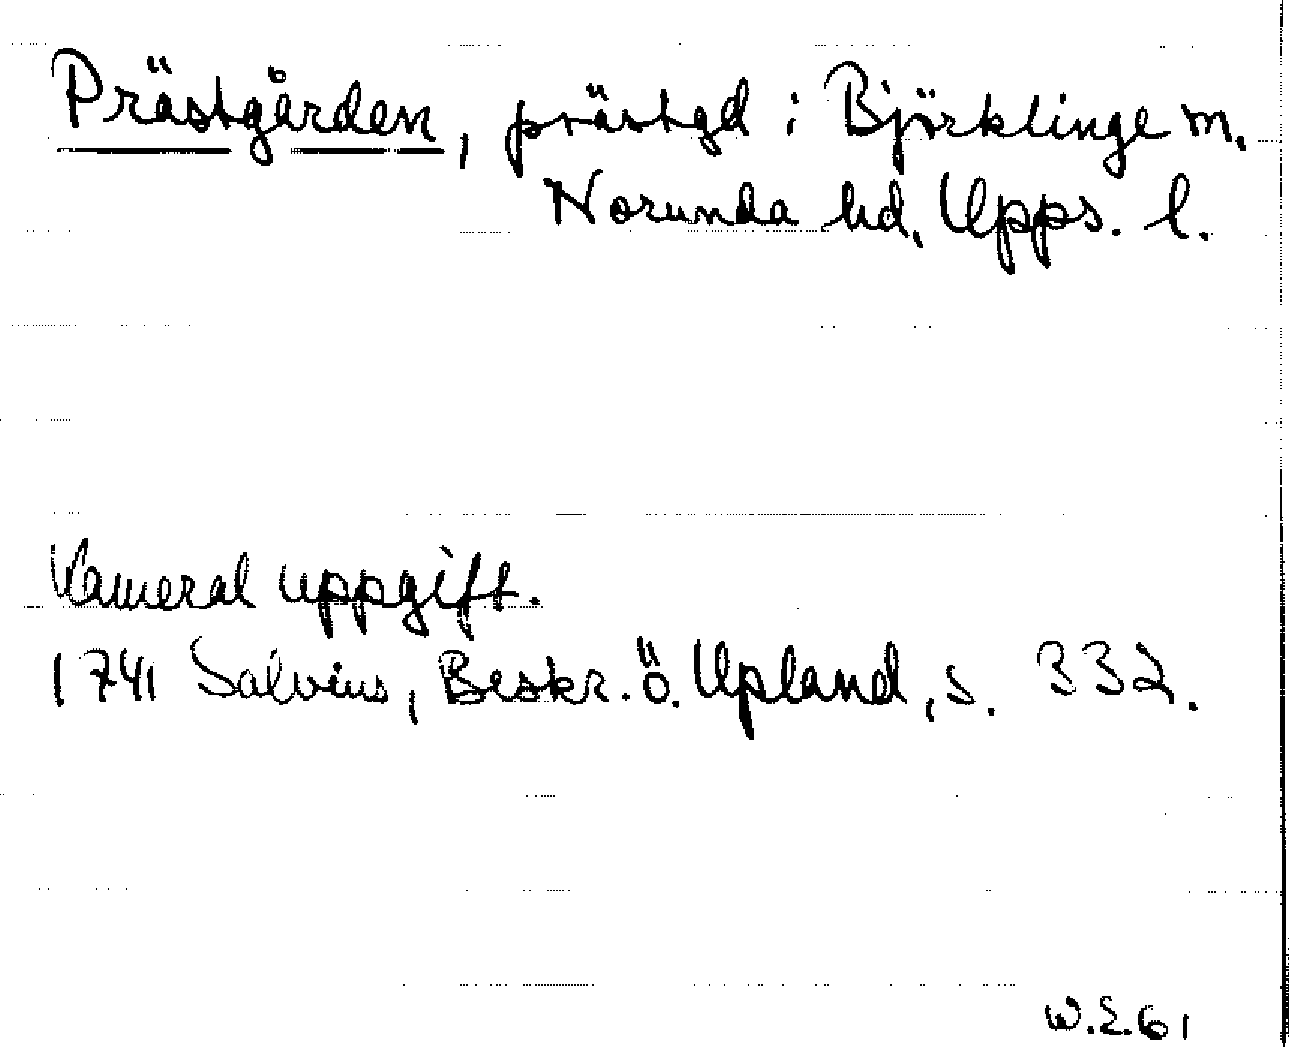 Prästgården, prästgd i Björklinge sn.
Norunda hd, Upps. l.
Kameral uppgift.
1741 Salvius, Beskr. ö. Upland, s. 332.
W.E. 61